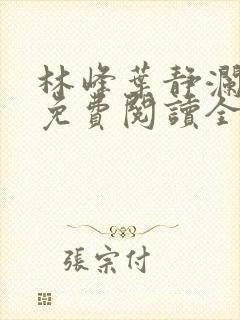 林峰葉静瀾
免費閱讀全
張宗付